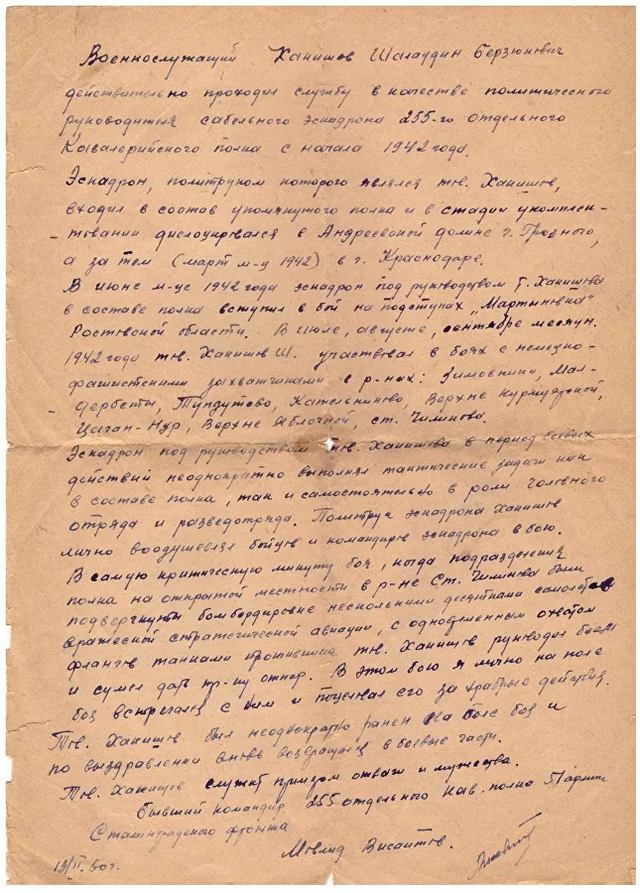 Военнослужащий Ханишов Шалаудин Берзюкевич
действительно проходил службу в качестве политического
руководителя сабельного эскадрона 255-го отдельного
Кавалерийского полка с начала 1942 года.
Эскадрон, политруком которого являлся тов. Ханишов,
входил в состав упомянутого полка и в стадии укомплек-
- товании дислоцировался в Андреевской долине г. Грозного,
а затем (март м-ц 1942) в г. Краснодаре.
В июне м-це 1942 года эскадрон под руководством т. Ханишова
в составе полка вступил в бой на подступах „Мартиновка"
Ростовской области. В июле, августе, сентябре месяцы.
1942 года тов. Ханишов Ш. участвовал в боях с немецко-
фашистскими захватчиками в р-нах: Зимовники, Мал-
- дербеты, Тундутово, Котельниково, Верхне Курмоярской,
Цаган-Нур, Верхне Яблочной, ст. Чилиново.
Эскадрон под руководством тов. Ханишова в период боевых
действий неоднократно выполнял тактические задачи как
в составе полка, так и самостоятельно в роли головного
отряда и разведотряда. Политрук эскадрона Ханишов
лично воодушевлял бойцов и командиров эскадрона в бою.
В самую критическую минуту боя, когда подразделения
полка на открытой местности в р-не Ст. Чилинова были
подвергнуты бомбардировке несколькими десятками самолётов
вражеской стратегической авиации, с одновременным охватом
флангов танками противника тов. Ханишов руководил боем
и сумел дать пр-ку отпор. В этом бою я лично на поле
боя встречался с ним и поцеловал его за храбрые действия.
Тов. Ханишов был неоднократно ранен на поле боя и
по выздоровлении вновь возвращался в боевые части.
Тов. Ханишов служит примером отваги и мужества.
Бывший командир 255 отдельного Кав. полка
Сталинградского фронта
Мовлид Висаитов.